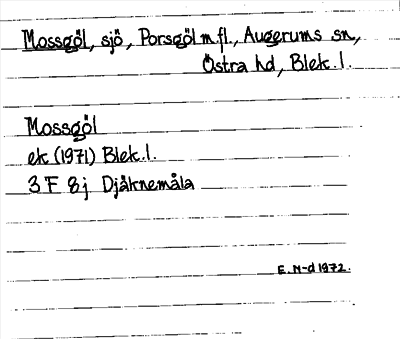 Mossgöl, sjö, Porsgöl m.fl., Augerums sn,
Östra hd, Blek. l.
Mossgöl
ek (1971) Blek. l.
3 F 8 j Djäknemåla
E. N-d 1972.